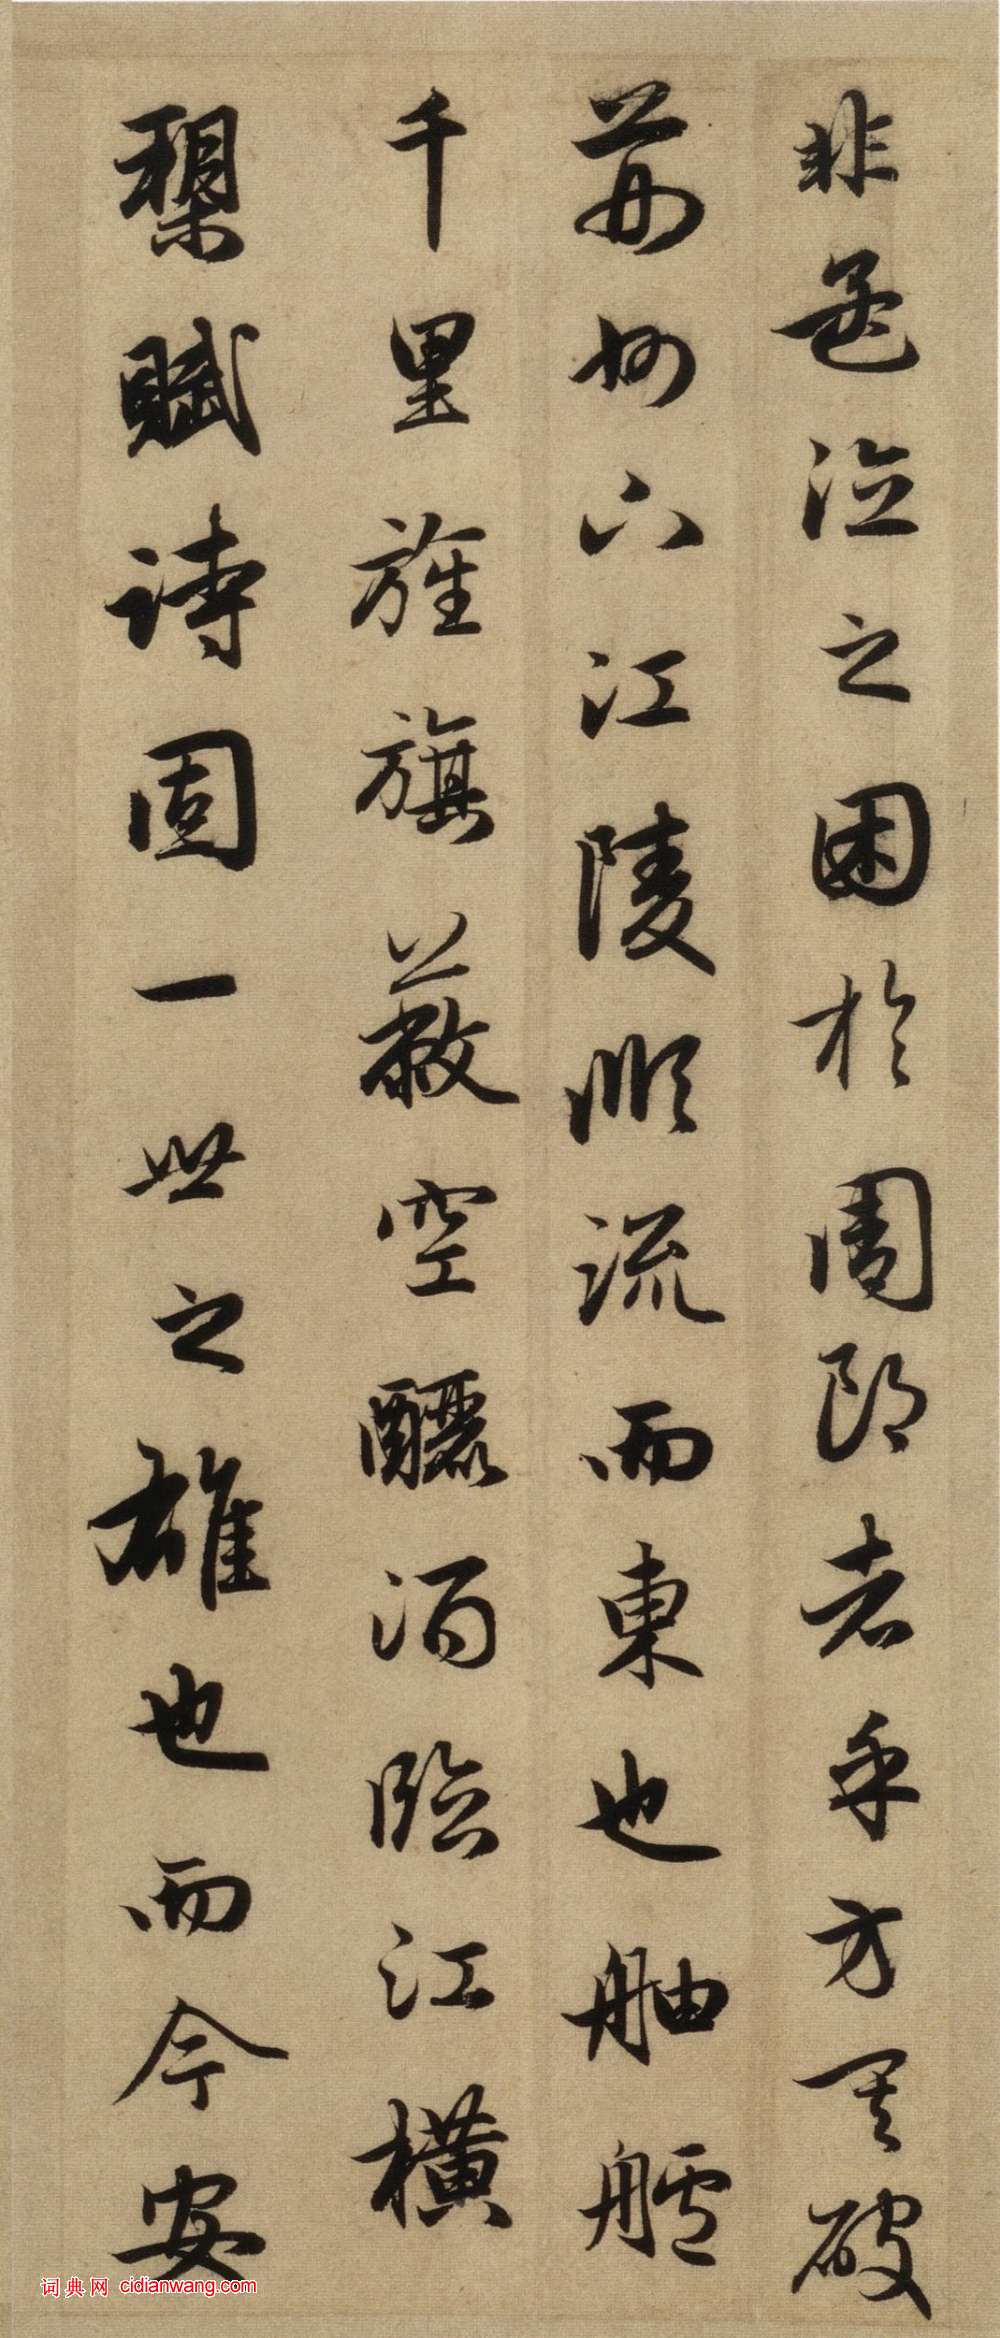 非孟德之困於周郎者乎方其破
荊州下江陵順流而東也舳艫
千里旌旗蔽空釃酒臨江橫
槊賦詩固一世之雄也而今安
词典网 cidianwang.com